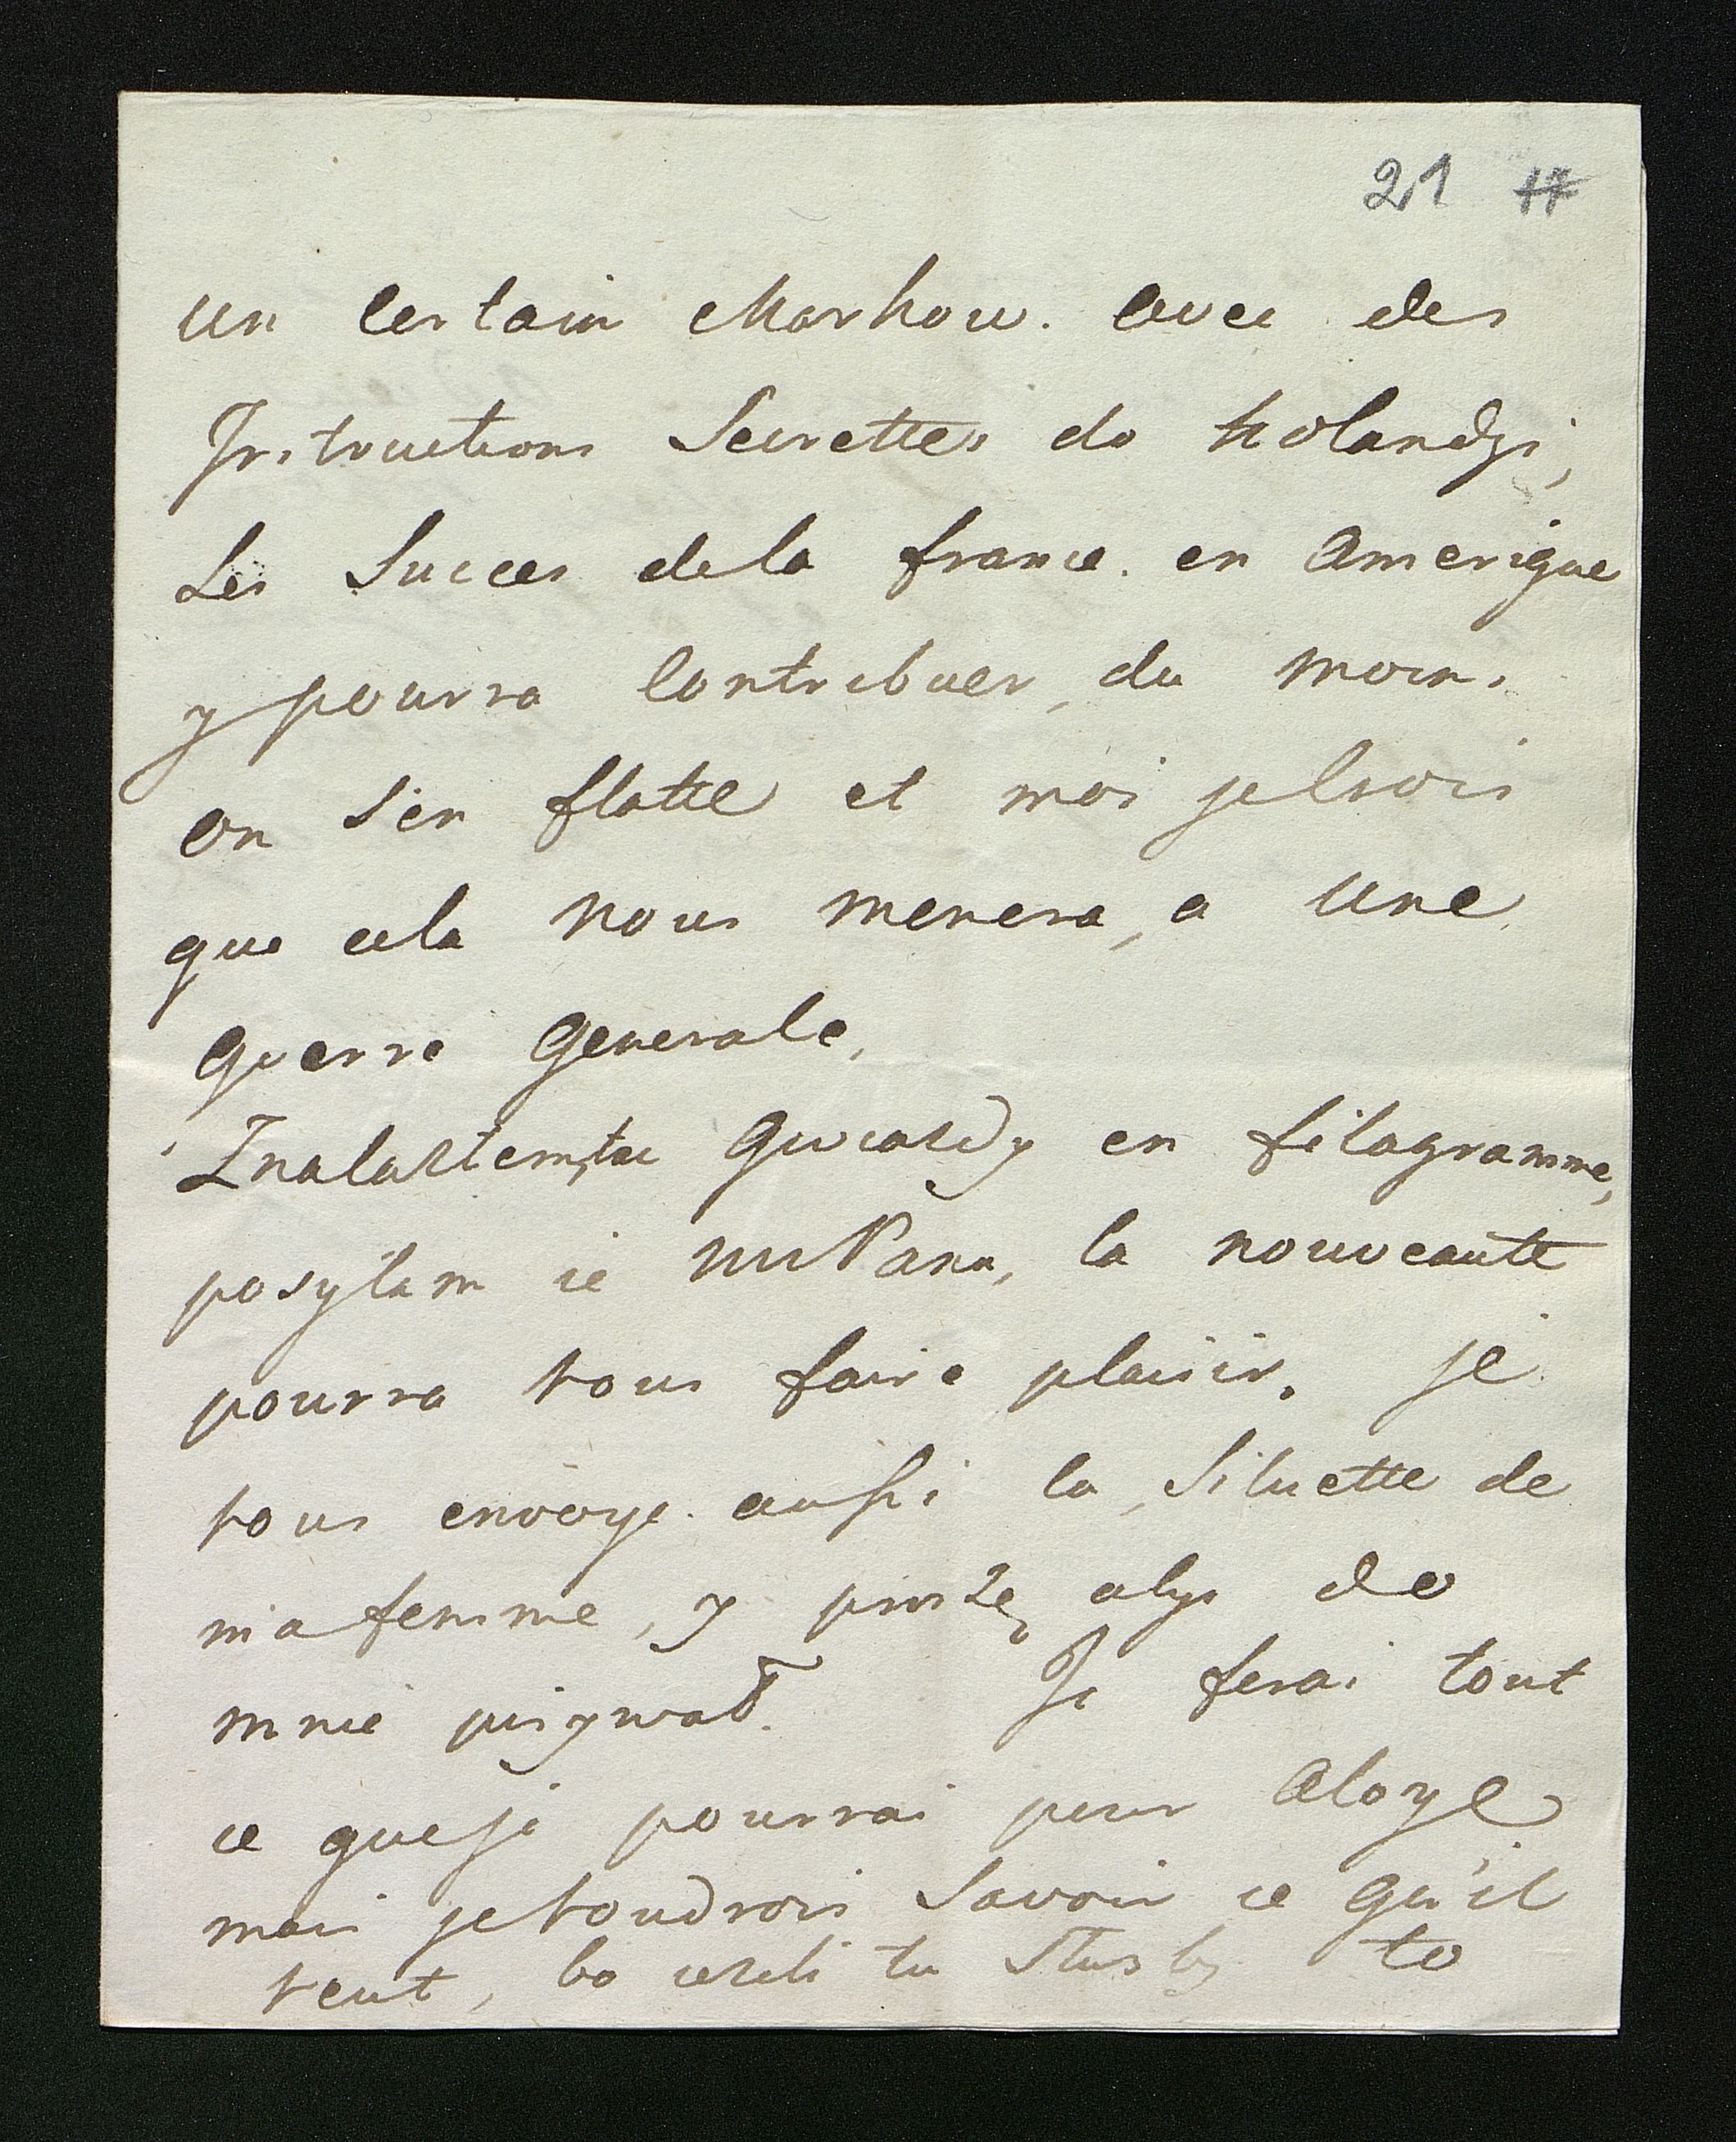 21 17
un certain Markow. avec des
Instructions Secrettes do Holandyi,
Les Succes dela france. en Amerique
y pourra Contribuer, du moins
on s'en flatte et moi jecrois
que cela nous menera, a une
Guerre Generale,
Znalaztem tu Gwiazdy en filagramme,
posylam ie WM Panu, la nouveauté
pourra vous faire plaisir. je
vous envoye. aussi la Siluette de
ma femme, y proszę aby do
mnie pisywał. Je ferai tout
ce queje pourrai pour Aloye
mais jevoudrois Savoir ce qu'il
veut, bo ieżeli tu Służby to